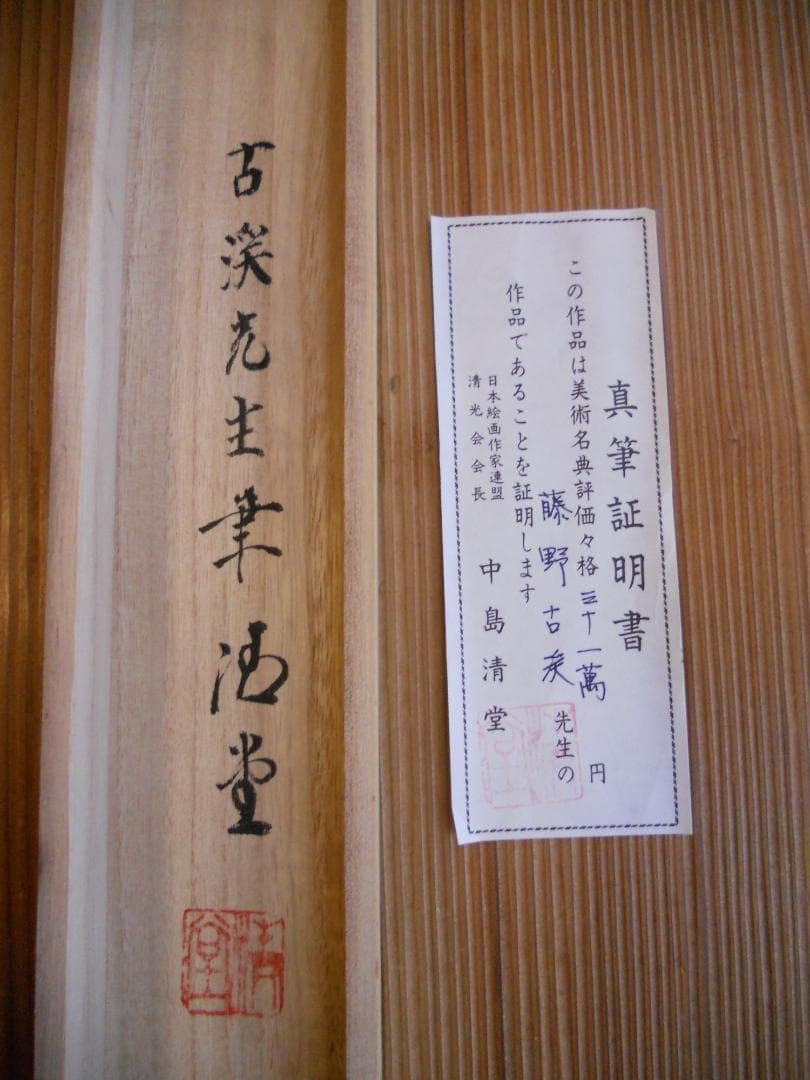 古渓先生筆 清堂
清堂
真筆証明書
この作品は美術名典評価々格三十一萬円
藤野古 先生の
作品であることを証明します
日本絵画作家連盟
清光会会長 中島清堂